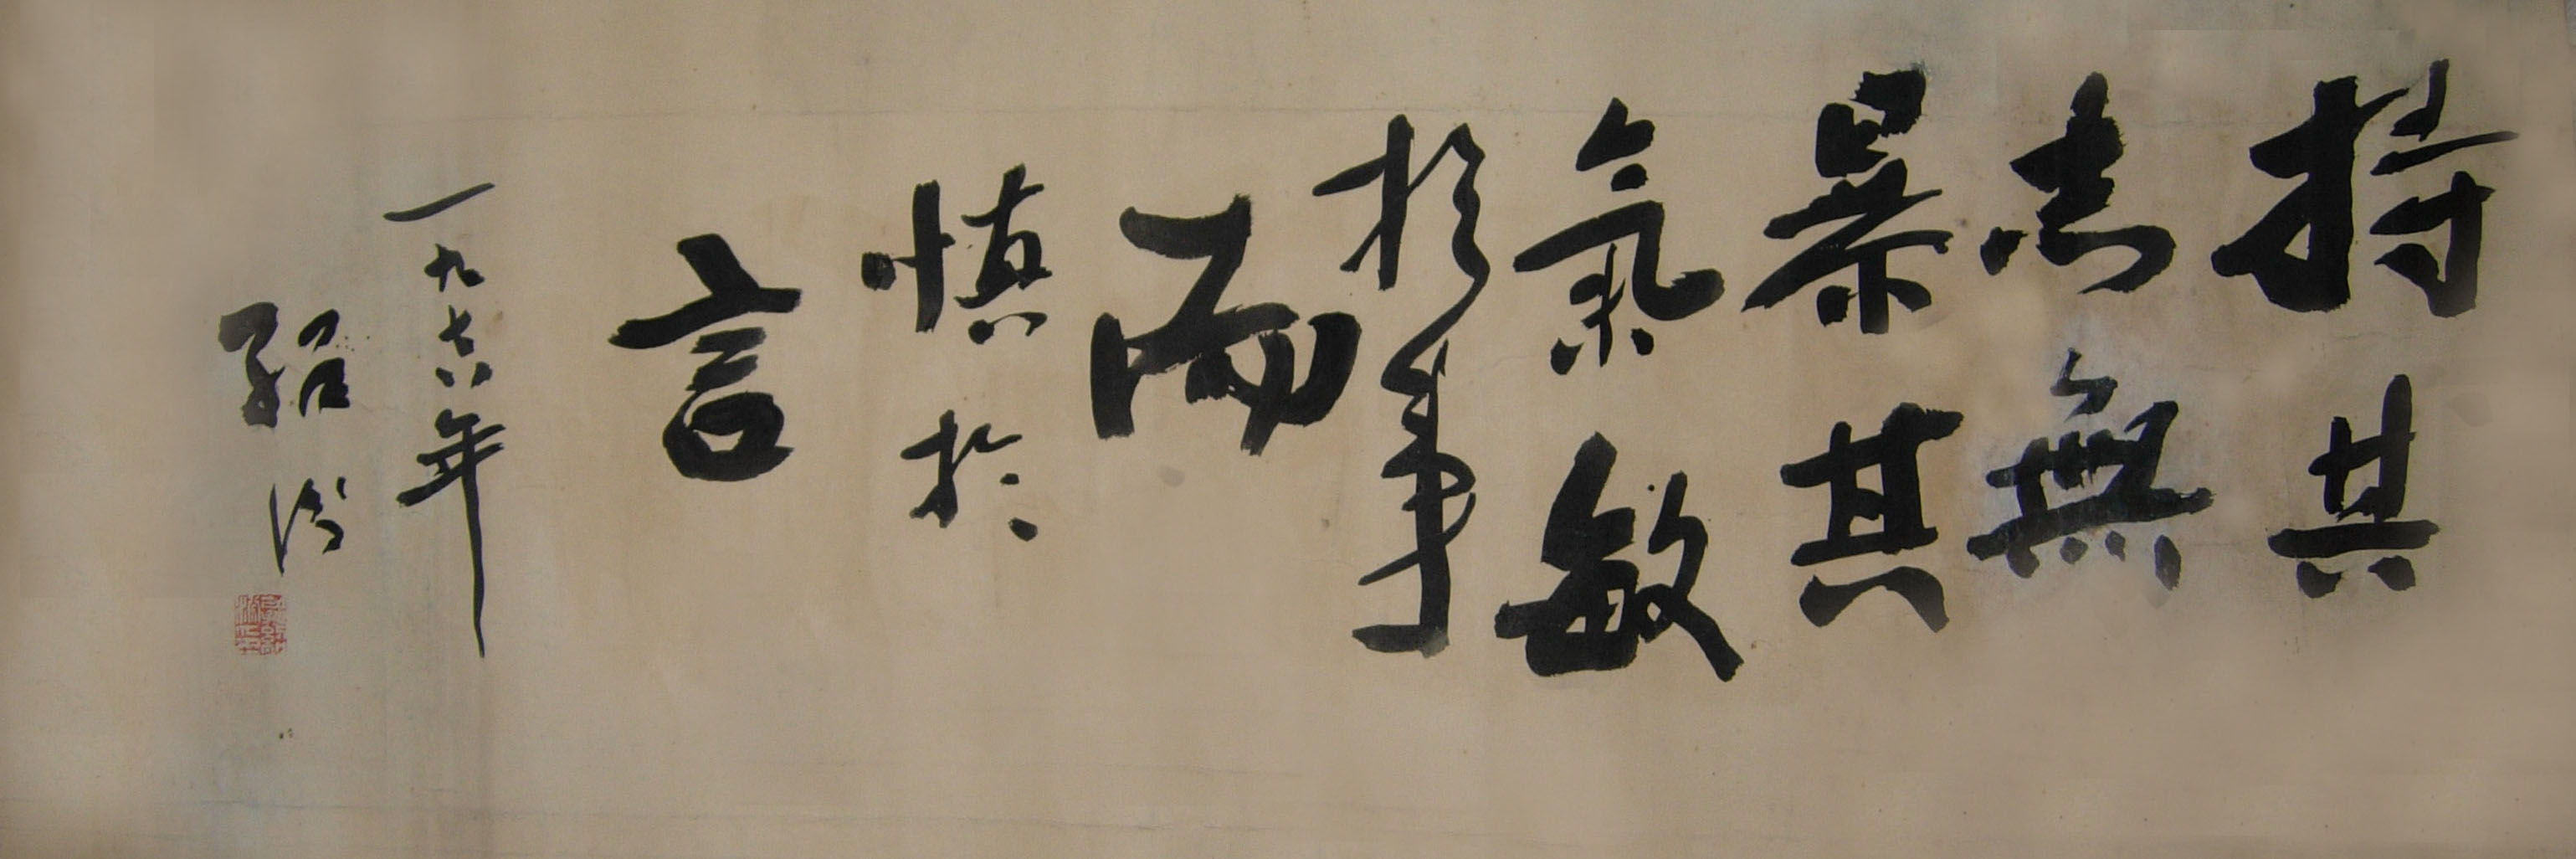 持其
志無
暴其
氣敏
於事
而
慎於
言
一九七六年
紹